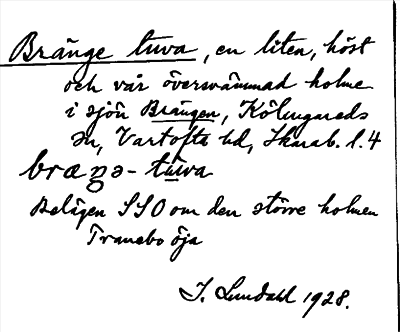 Bränge tuva, en liten, höst
och vår översvämmad holme
i sjön Brängen, Kölingareds
sn, Vartofta hd, Skarab. l. 4
bræŋə-tùva
Belägen SSO om den större holmen
Tranebo öja
I. Lundahl 1928.